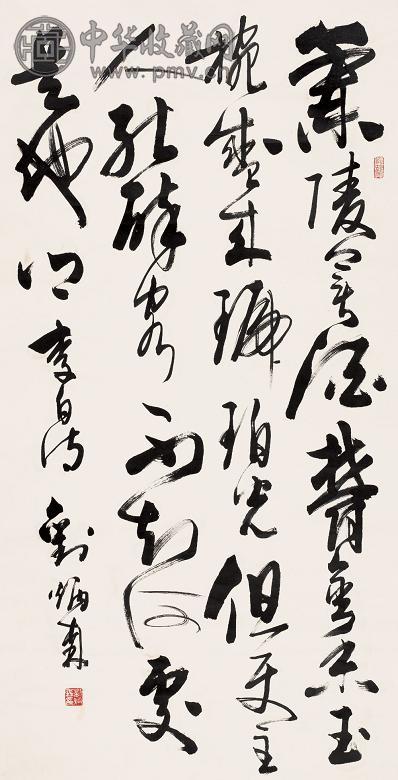 蘭陵美酒鬱金香玉
椀盛来琥珀光但使主
人能醉客不知何處
是他鄉 李白詩 劉炳森
中华收藏网
www.pmv.cn